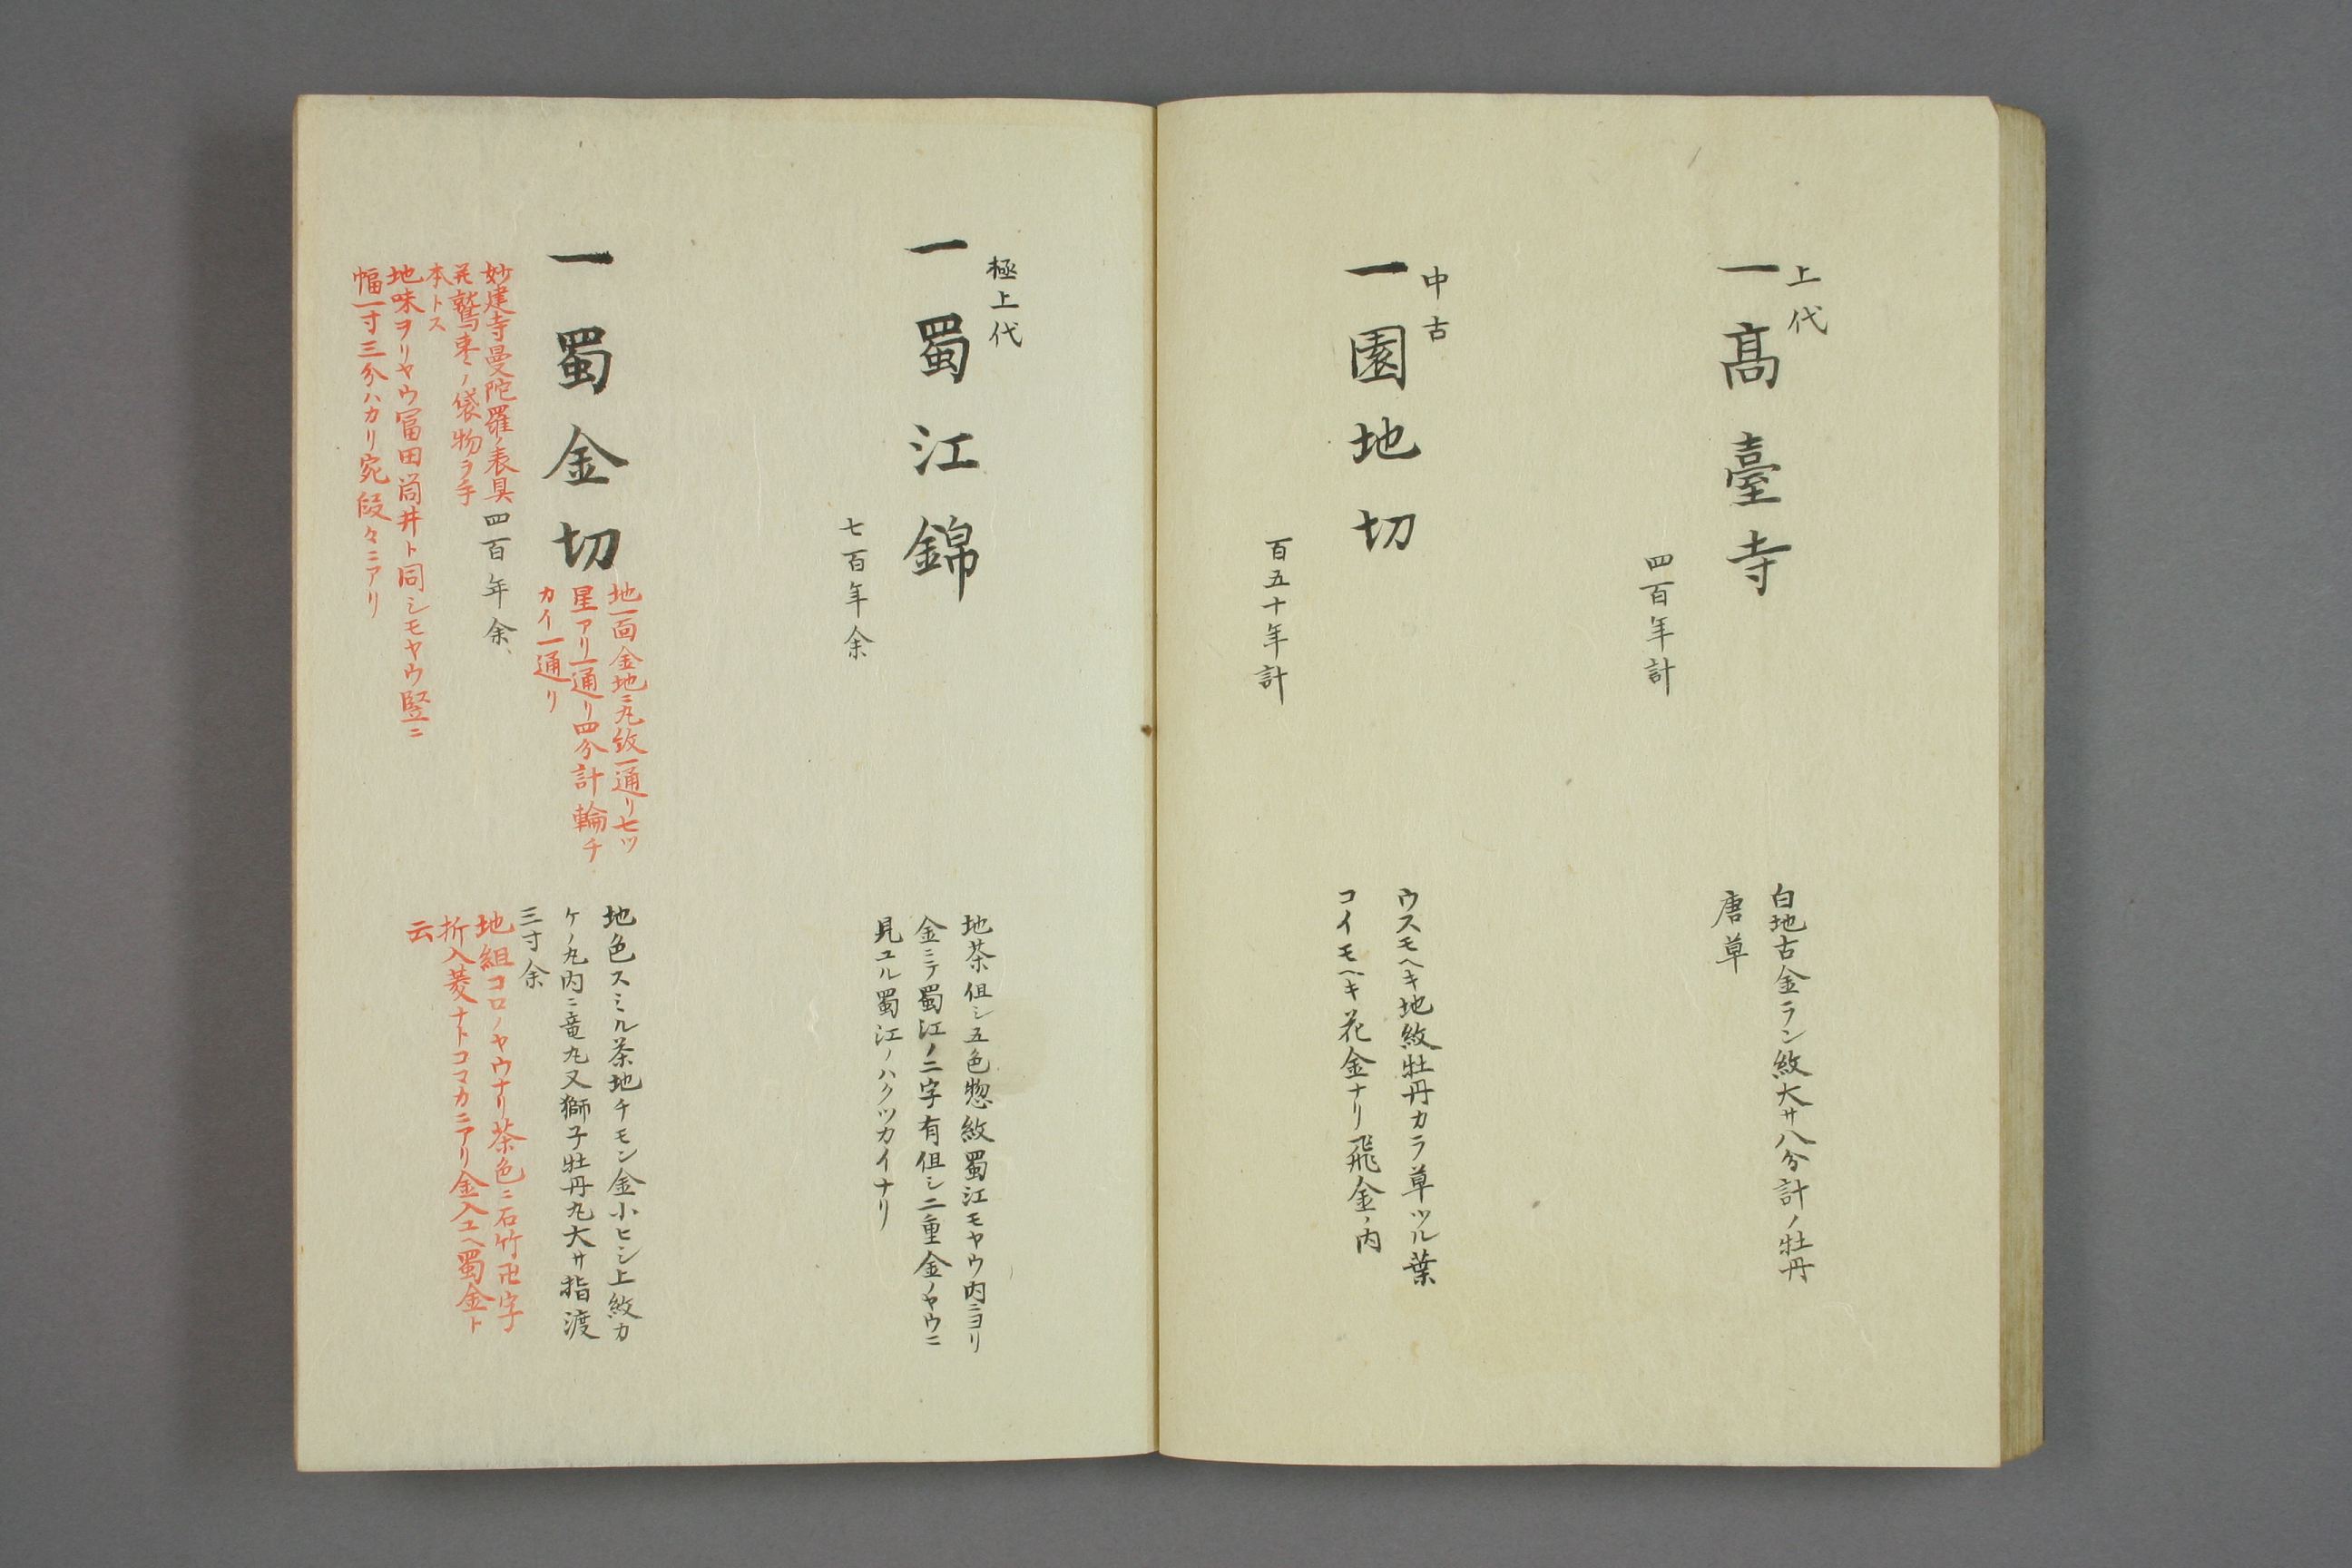 上代
一高臺寺
四百年計
白地古金ラン紋大サ八分計ノ牡丹
唐草
中古
一園地切
百五十年計
ウスモヘキ地紋牡丹カラ草ツル葉
コイモヘキ花金ナリ飛金ノ内
極上代
一蜀江錦
七百年余
地茶但シ五色惣紋蜀江モヤウ内ニヨリ
金ミテ蜀江ノ二字有但シ二重金ノヤウニ
見ユル蜀江ノハクツカイナリ
一蜀金切
地一面金地ニ丸紋一通リ七ツ
星アリ一通リ四分計輪チ
カイ一通リ
四百年余
地色スミル茶地チモン金小ヒシ上紋カ
ケノ丸内ニ竜丸又獅子牡丹丸大サ指渡
三寸余
地組コロノヤウナリ茶色ニ石竹卍字
折入菱ナトコマカニアリ金入ユヘ蜀金ト
云
妙建寺曼陀羅ノ表具
鷲棗ノ袋物ヲ手
本トス
地味ヲリヤウ冨田筒井ト同シモヤウ竪ニ
幅一寸三分ハカリ宛段々ニアリ